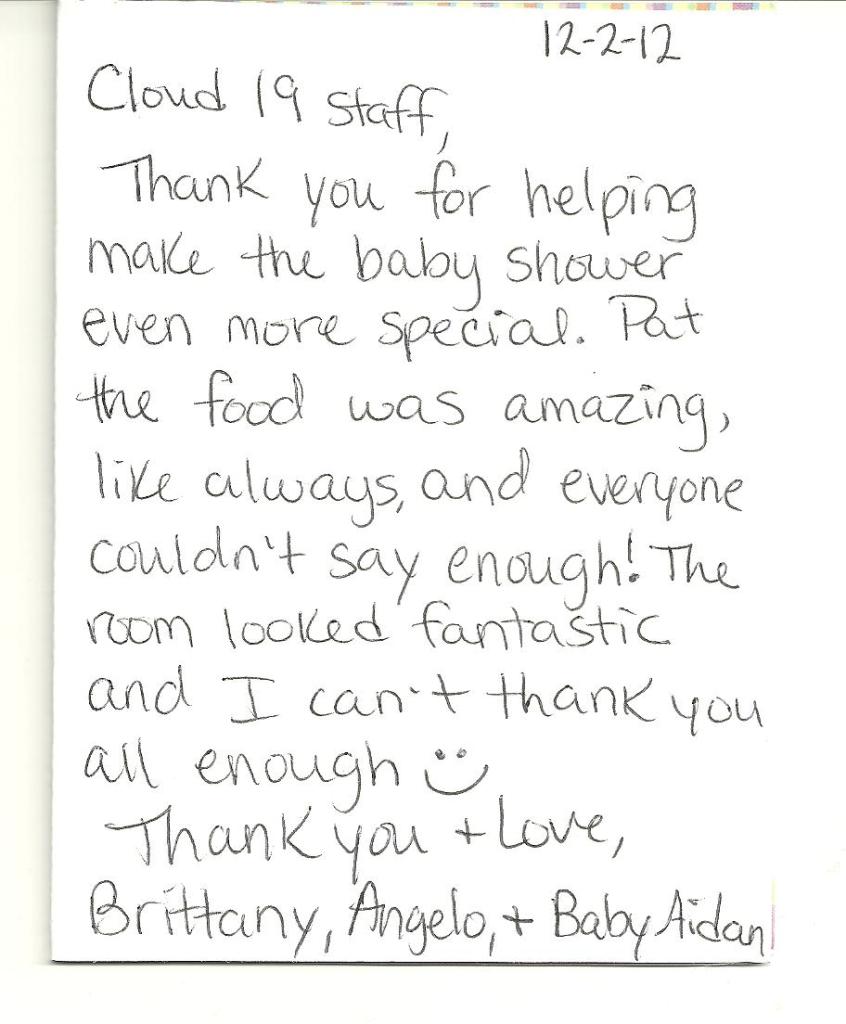 12-2-12
Cloud 19 staff,
Thank you for helping
make the baby shower
even more special. Pat
the food was amazing,
like always, and everyone
couldn't say enough! The
room looked fantastic
and I can't thank you
all enough :)
Thank you + Love,
Brittany, Angelo, + Baby Aidan